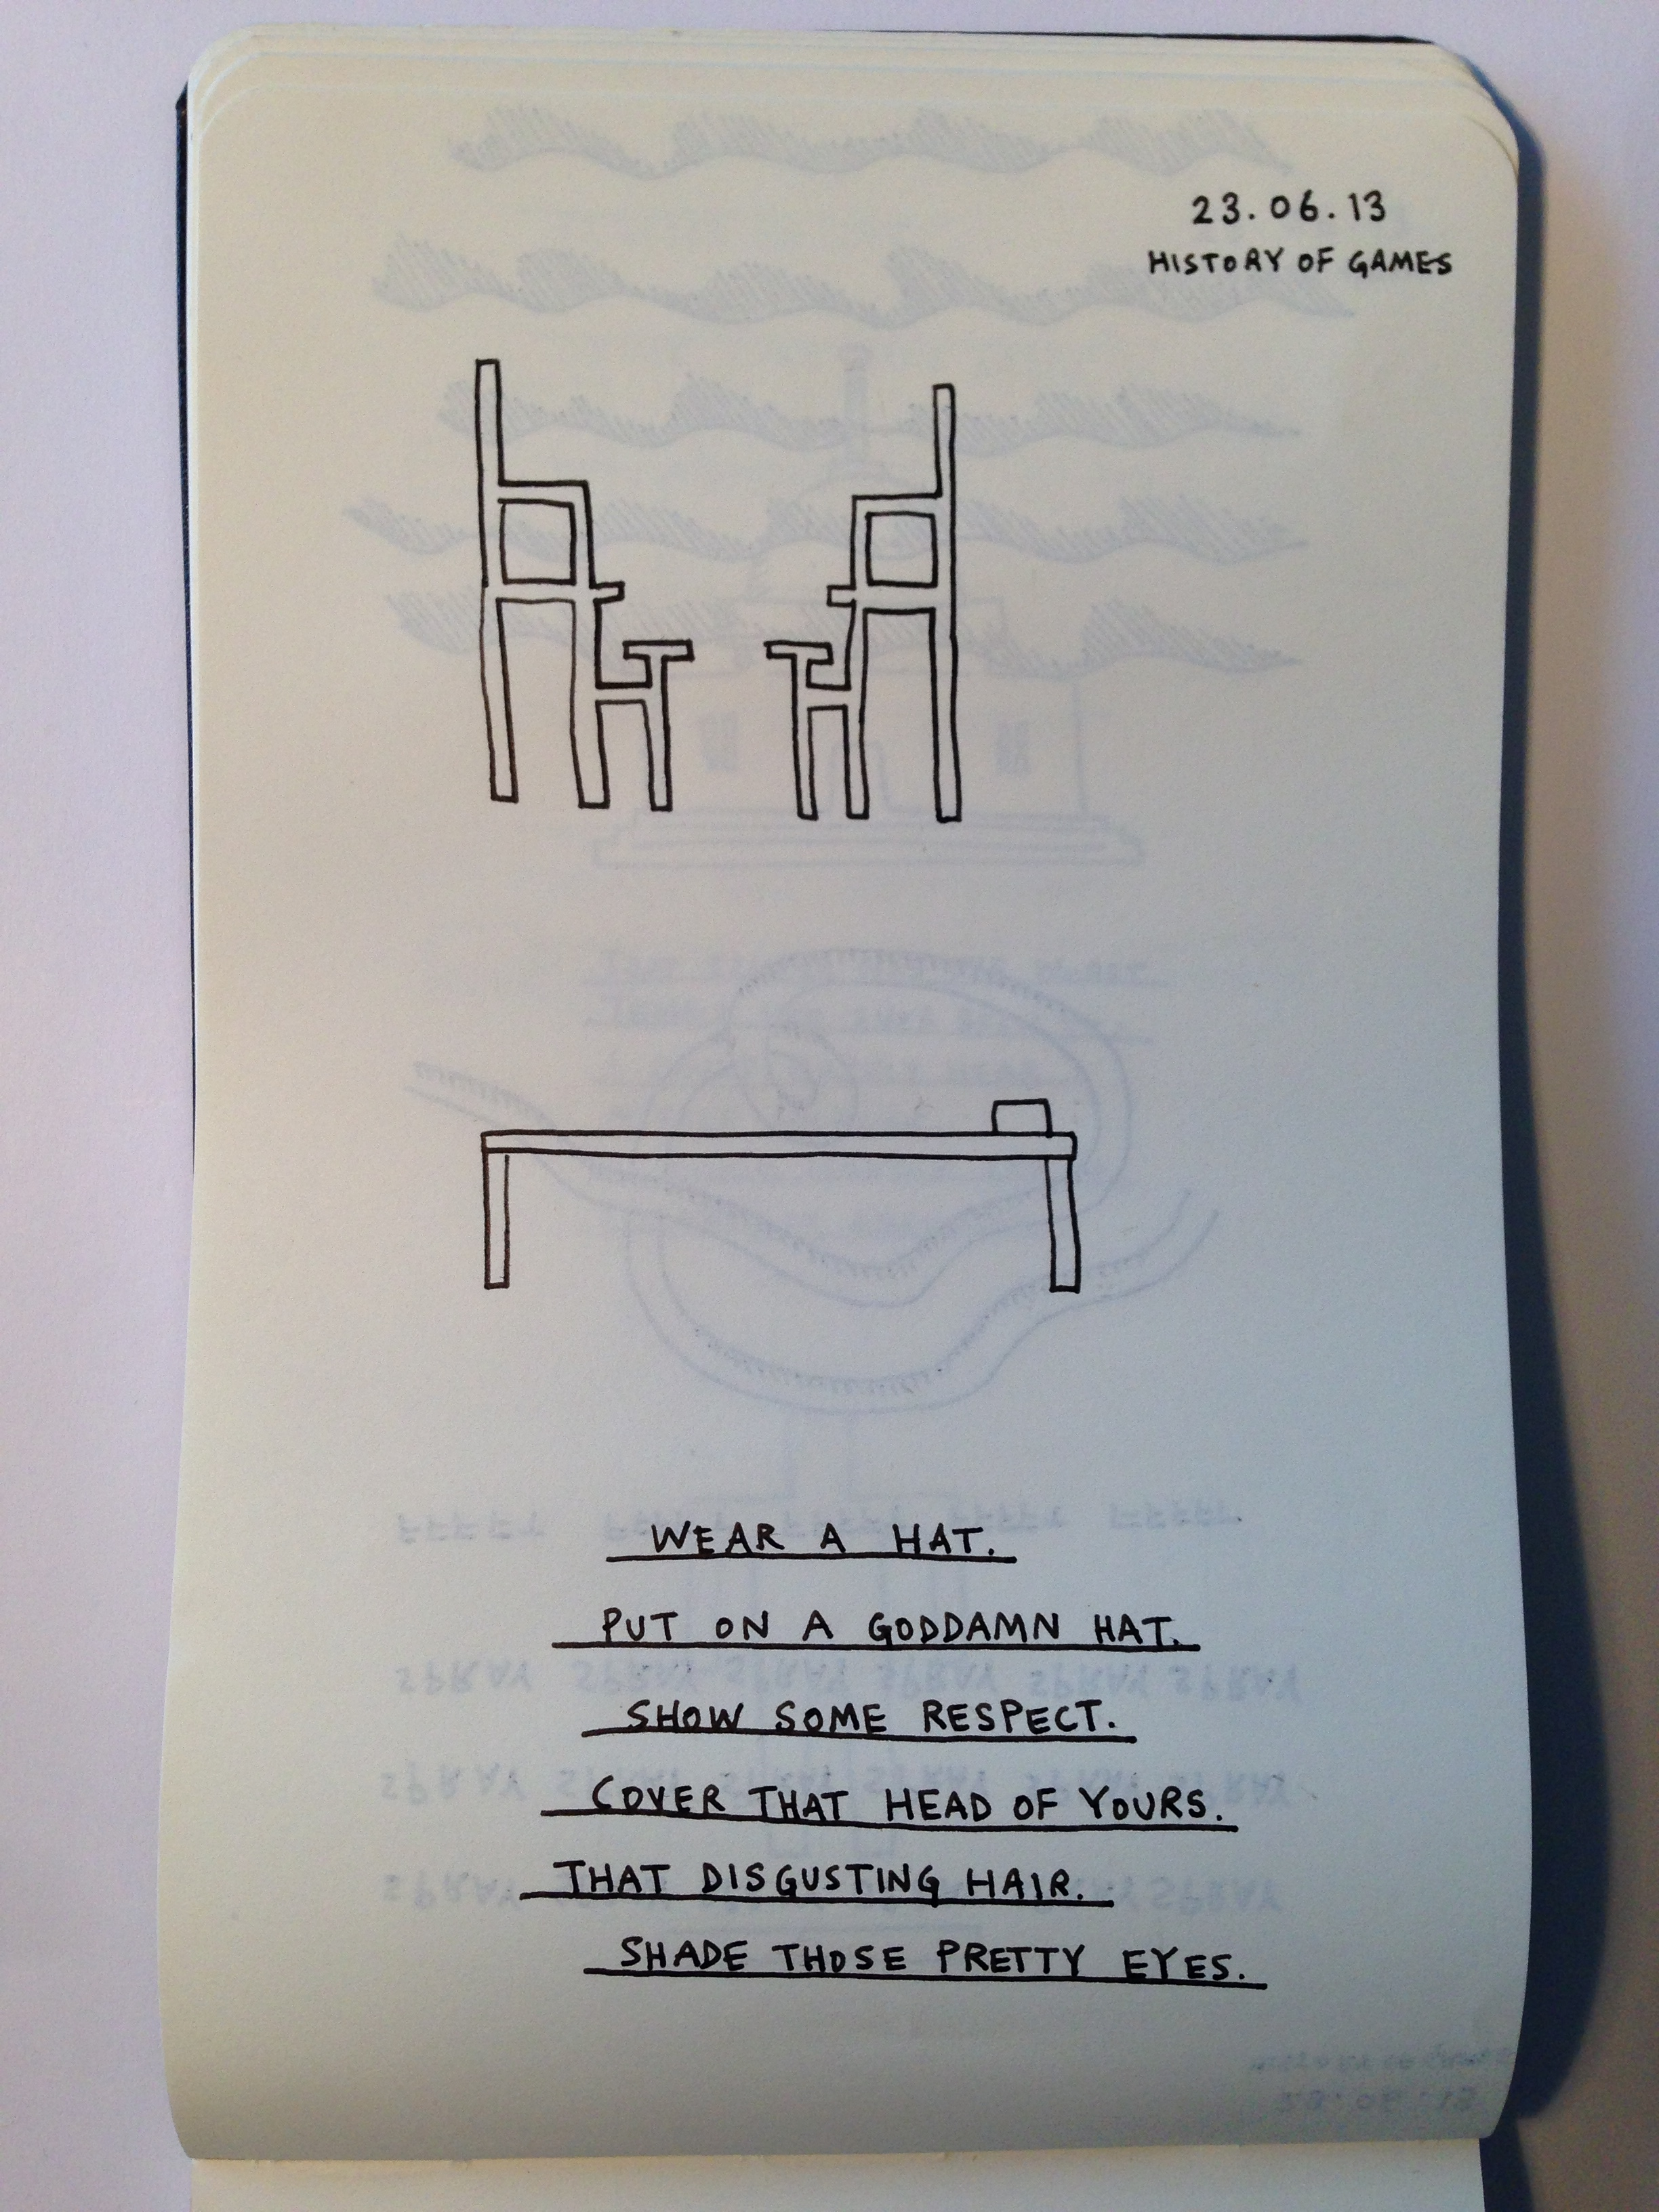 23.06.13
HISTORY OF GAMES
WEAR A HAT.
PUT ON A GODDAMN HAT.
SHOW SOME RESPECT.
COVER THAT HEAD OF YOURS.
THAT DISGUSTING HAIR.
SHADE THOSE PRETTY EYES.